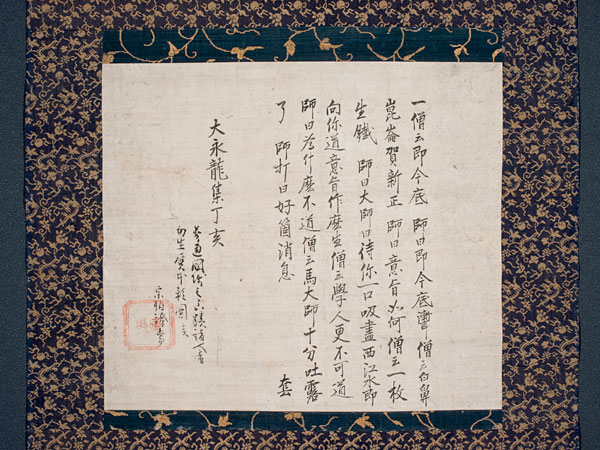 一僧云即今底　師曰即今底聻　僧云白鼻
崑崙賀新正　師曰意旨如何僧云一枚
生鐵　師曰大師曰待你一口吸盡西江水即
向你道意旨作麽生僧云學人更不可道
師曰為什麽不道僧云馬大師十分吐露
了　師打曰好箇消息　套
大永龍集丁亥